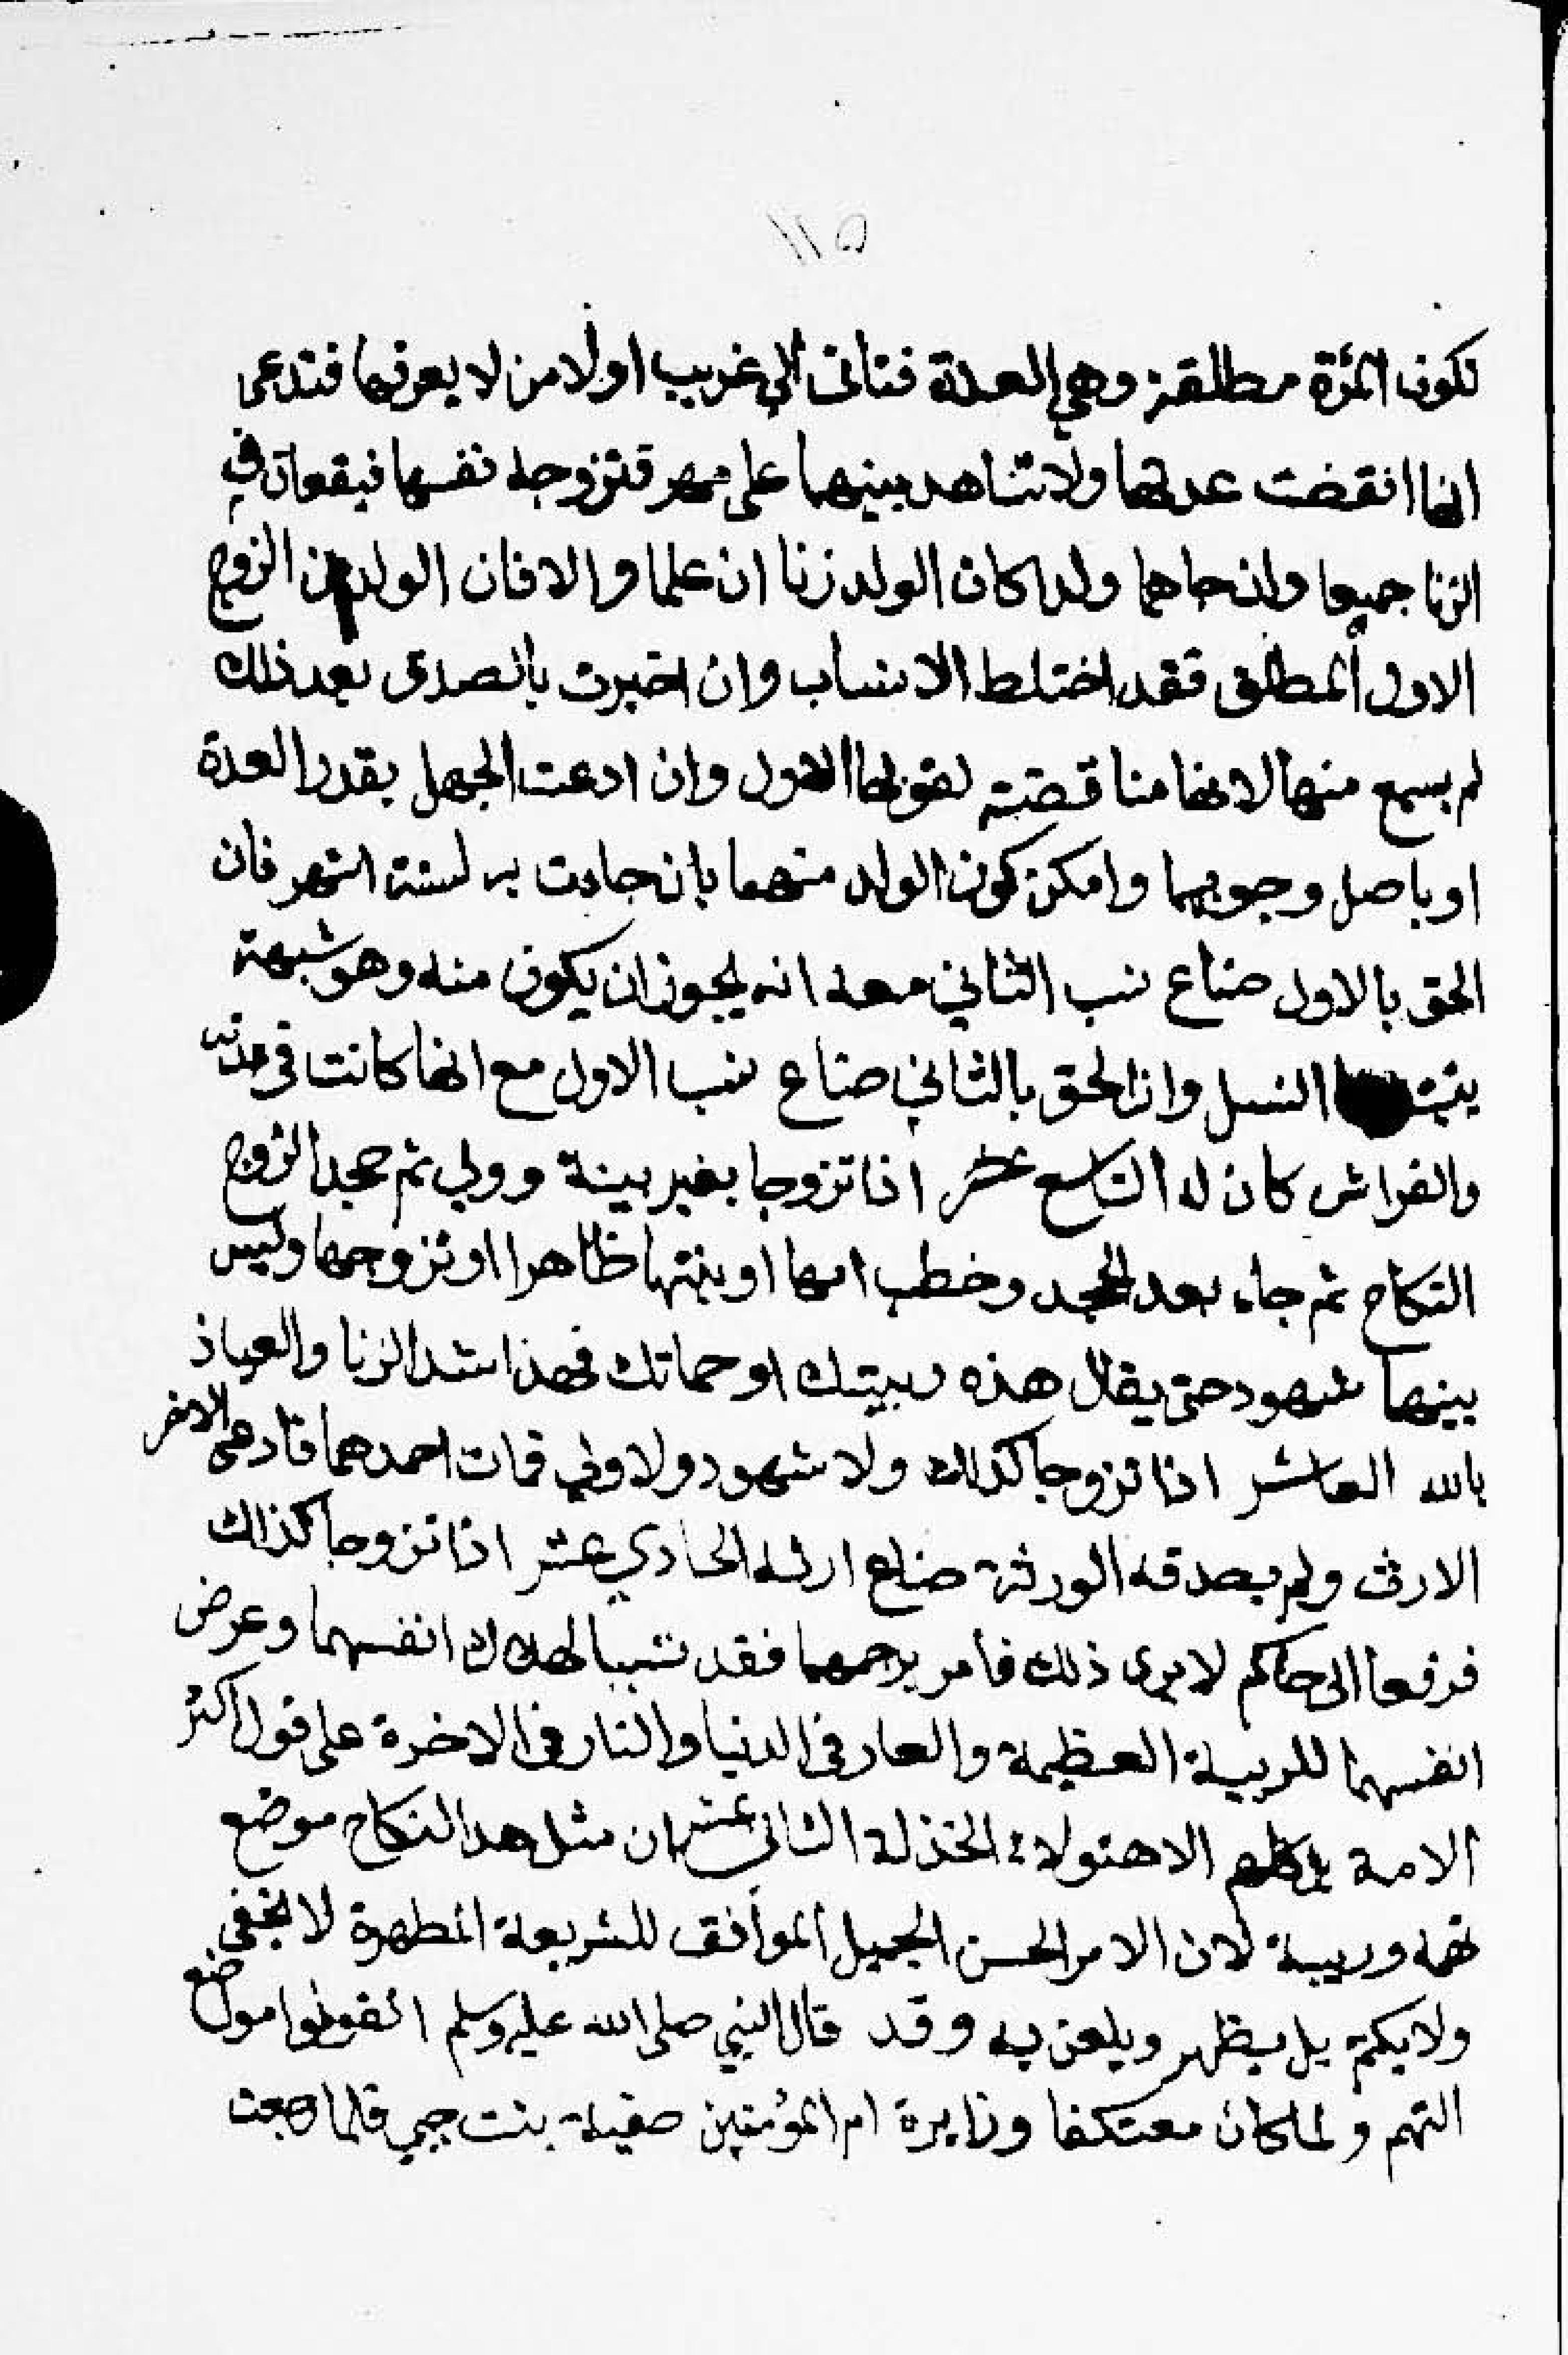 ١١٥
تكون المرٔة مطلقة وهي في العدة فتاتى الي غريب او لا من لا يعرفها فتدعى
انها انقضت عدتها ولا تشاهد بينهما على مهر فتزوجه نفسها فيقعان في
الزنا جميعا وان جاهما ولدا كان الولد زنا ان علما والا فان الولد من الزوج
الاول المطلق فقد اختلط الانساب وان اخبرت بالصدق بعد ذلك
لم يسمع منها لانها مناقضته لقولها الاول وان ادعت الجهل بقدر العدة
او باصل وجوبها وامكن كون الولد منهما بان جاءت به لستة اشهر فان
الحق بالاول ضاع نسب الثاني معه انه يجوز ان يكون منه وهو شبهة
يثبت النسل وان الحق بالثاني ضاع نسب الاول مع انها كانت في عدته
والفراش كان له التاسع عشر اذا تزوجا بغير بينة وولي ثم جحد الزوج
النكاح ثم جاء بعد الجحد وخطب امها او بنتها ظاهرا او تزوجها وليس
بينها شهود حتى يقال هذه ربيبتك او حماتك فهذا اشد الزنا والعياذ
بالله العاشر اذا تزوجا كذلك ولا شهود ولا ولي فمات احدهما فادعى الاخر
الارث ولم يصدقه الورثة ضاع ارثه الحادي عشر اذا تزوجا كذلك
فرفعا الى حاكم لا يرى ذلك فامر برجمهما فقد تسببا لهلاك انفسهما وعرض
انفسهما للريبة العظيمة والعار في الدنيا والنار في الاخرة على قول اكثر
الامة بل كلهم الا هئولاء الخذلة الثانى عشر ان مثل هدا النكاح موضع
تهمه وريبة لان الامر الحسن الجميل الموافق للشريعة المطهرة لا يخفى
ولا يكتم بل يظهر ويلعن به وقد قال النبي صلى الله عليه وسلم اتقوا مواضع
التهم و لما كان معتكفا وزايرة ام المؤمنين صفية بنت حيي فلما رجعت